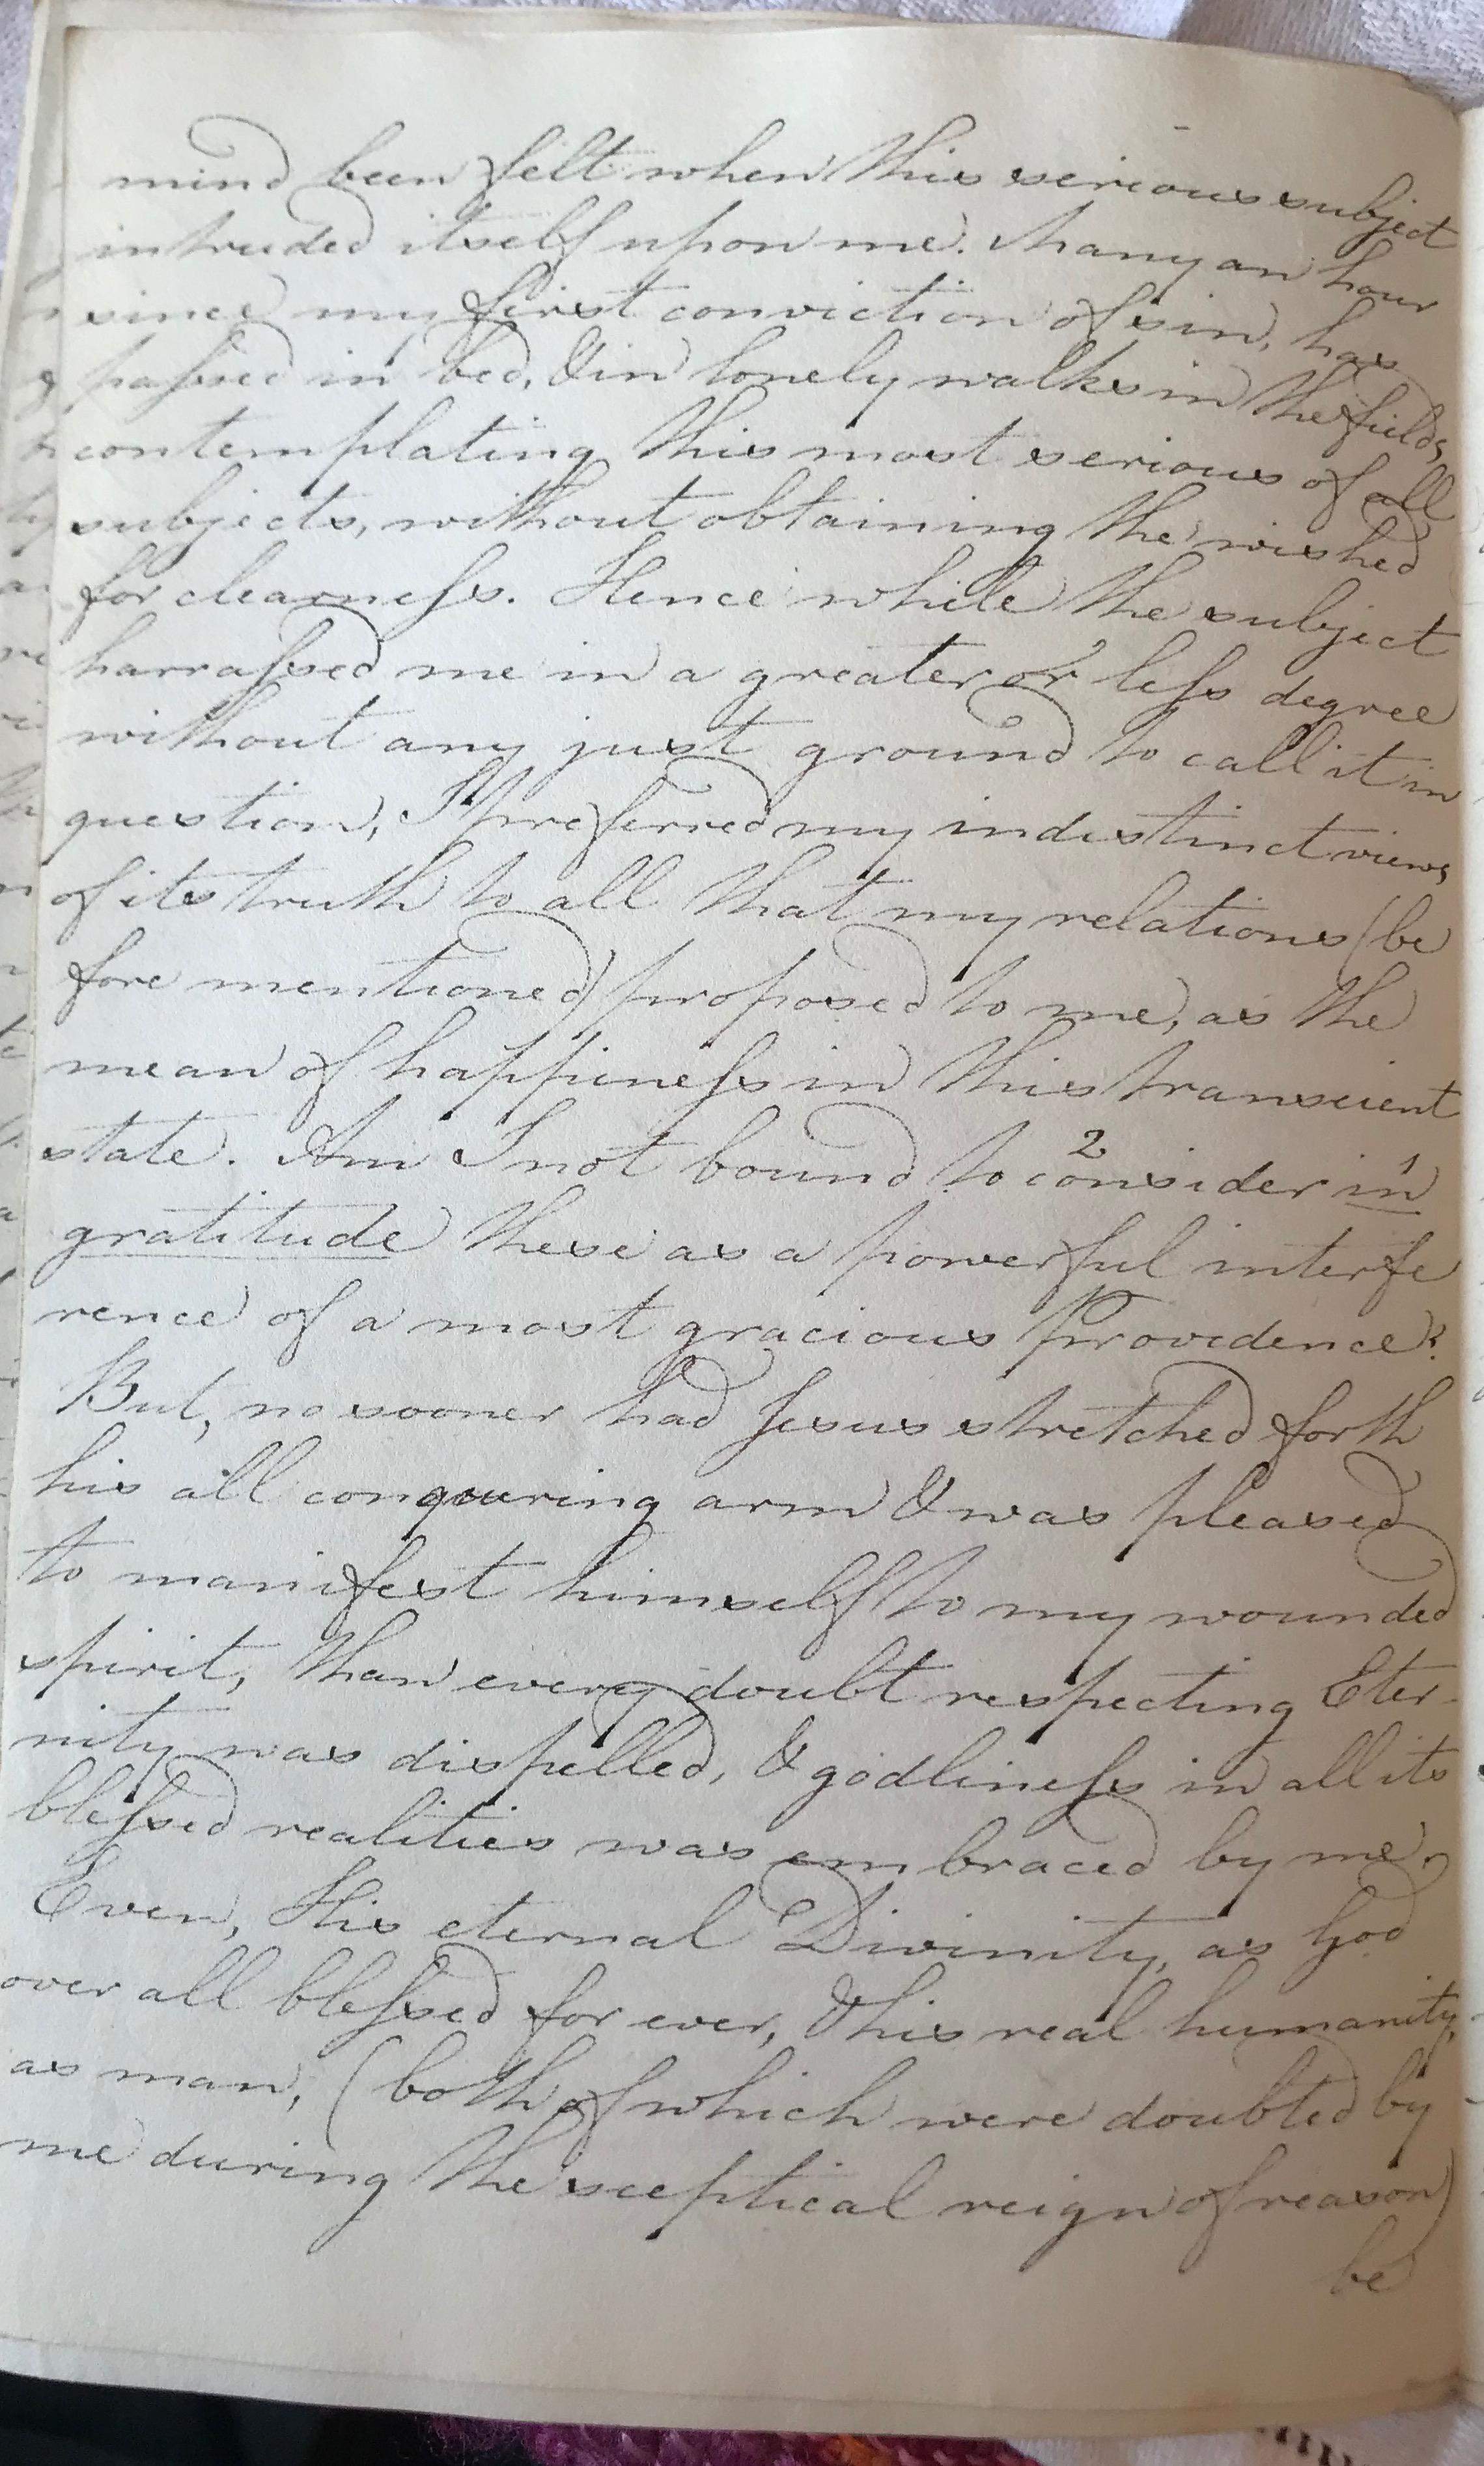 mind been felt when this serious subject
intruded itself upon me. Many an hour
since my first conviction of sin, has
passed in bed, & in lonely walks in the fields,
contemplating this most serious of all
subjects, without obtaining the wished
for clearness. Hence while the subject
harrassed me in a greater or less degree
without any just ground to call it in
question, I preferred my indistinct views
of its truth to all that my relations (be
fore mentioned) proposed to me, as the
mean of happiness in this transcient
state. Am I not bound to 2 consider 1 in
gratitude these as a powerful interfe
rence of a most gracious Providence?
But, no sooner had Jesus stretched forth
his all conquering arm & was pleased
to manifest himself to my wounded
spirit, than every doubt respecting Eter-
nity was dispelled, & godliness in all its
blessed realities was embraced by me.
Even, His eternal Divinity, as God
over all blessed for ever, & his real humanity,
as man, (both of which were doubted by
me during the sceptical reign of reason)
be